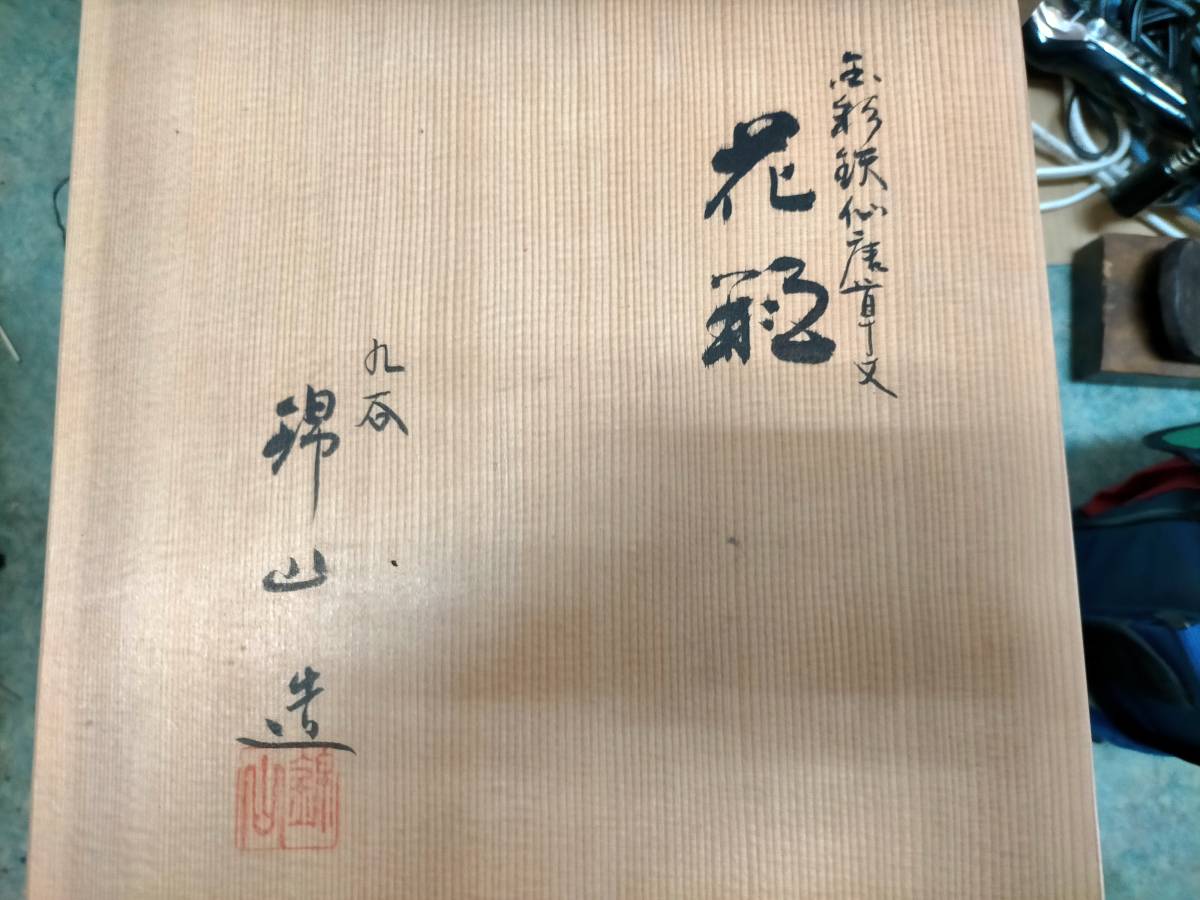 金彩鉄仙唐草文
花瓶
九谷
錦山
造
錦山